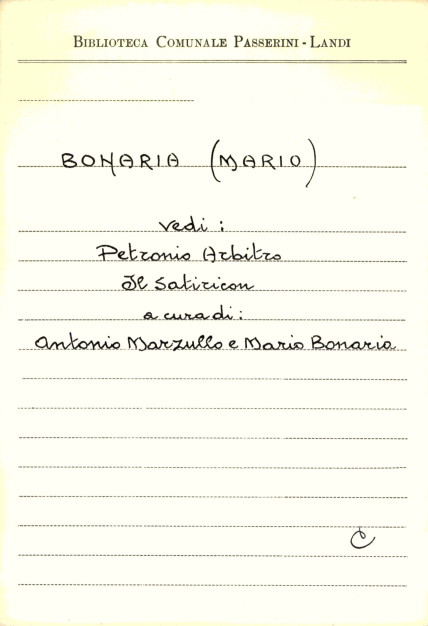 BIBLIOTECA COMUNALE PASSERINI - LANDI
BONARIA (MARIO)
vedi :
Petronio Arbitro
Il Satiricon
a cura di :
Antonio Marzullo e Mario Bonaria
C